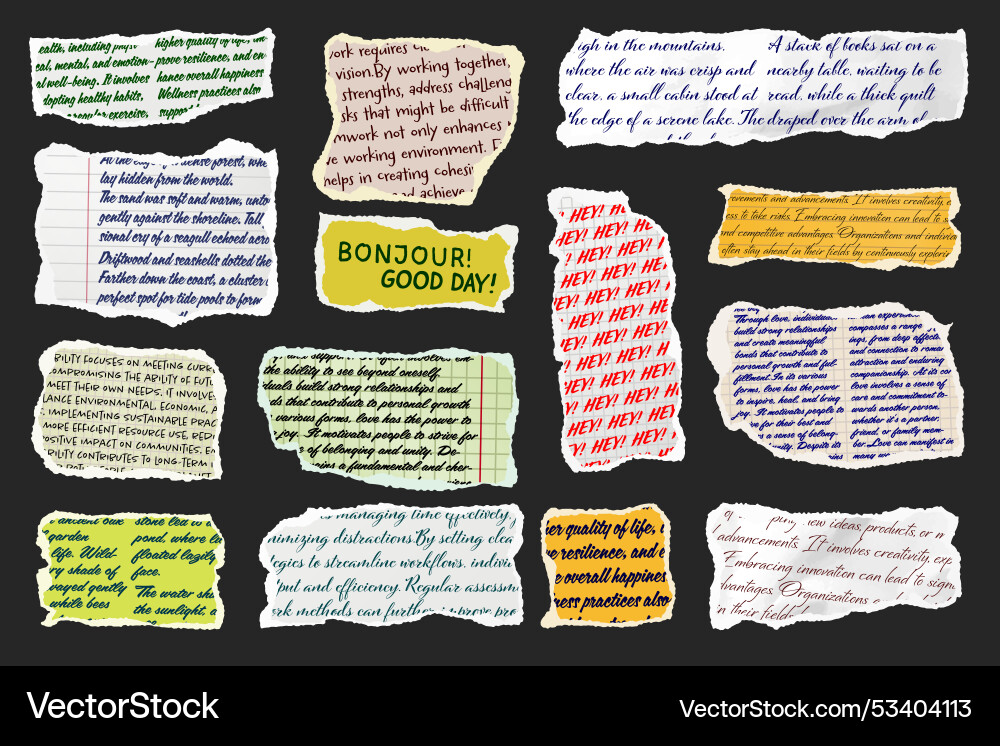 ealth, including
cal, mental, and emotion-
al well-being. It involves
dopting healthy habits,
exercise,
higher quality of life,
prove resilience, and en
hance overall happiness
Wellness practices also
work requires
vision.By working together,
strengths, address challeng
sks that might be difficult
mwork not only enhances
e working environment.
helps in creating cohesi
achieve
igh in the mountains,
where the air was crisp and
clear, a small cabin stood at
the edge of a serene lake. The
A stack of books sat on a
nearby table, waiting to be
read, while a thick quilt
draped over the arm of
At the edge of a dense forest, whe
lay hidden from the world.
The sand was soft and warm, unto
gently against the shoreline. Tall
sional cry of a seagull echoed acro
Driftwood and seashells dotted the
Farther down the coast, a cluster
perfect spot for tide pools to form
BONJOUR!
GOOD DAY!
HEY! HEY! H
HEY! HEY! HE
HEY! HEY! HEY!
HEY! HEY! HEY!
EY! HEY! HEY! H
HEY! HEY! HEY!
HEY! HEY! HEY!
HEY! HEY! H
HEY! HEY! HE
HEY! HEY! HEY!
HEY! HEY! HEY!
HEY! HEY! HEY!
HEY! HEY! HEY!
ovements and advancements. It involves creativity, e
ess to take risks. Embracing innovation can lead to s
and competitive advantages. Organizations and individ
often stay ahead in their fields by continuously explorin
Through love, individua
build strong relationships
and create meaningful
bonds that contribute to
personal growth and ful-
fillment. In its various
forms, love has the power
to inspire, heal, and bring
joy. It motivates people to
ve for their best and
s a sense of belong-
Despite its
an experien
compasses a range
ings, from deep affectio
and connection to roman
attraction and enduring
companionship. At its cor
love involves a sense of
care and commitment to-
wards another person,
whether it's a partner,
friend, or family mem-
ber. Love can manifest in
many
RILITY FOCUSES ON MEETING CURR
OMPROMISING THE ABILITY OF FUTU
MEET THEIR OWN NEEDS. IT INVOLVE
LANCE ENVIRONMENTAL, ECONOMIC, A
IMPLEMENTING SUSTAINABLE PRAC
MORE EFFICIENT RESOURCE USE, RED
OSITIVE IMPACT ON COMMUNITIES. EN
BILITY CONTRIBUTES TO LONG-TERM
y and support. It often involves em-
the ability to see beyond oneself
duals build strong relationships and
ds that contribute to personal growth
various forms, love has the power to
joy. It motivates people to strive for
e of belonging and unity. De-
ains a fundamental and cher-
ancient oak
garden
life. Wild-
ry shade of
wayed gently
while bees
stone led to a
pond, where lu
floated lazily
face.
The water sh
the sunlight, a
managing time effectively,
nimizing distractions.By setting clea
tegies to streamline workflows, indivi
put and efficiency. Regular assessm
ork methods can further improve pro
her quality of life,
ve resilience, and e
e overall happines
ness practices also
new ideas, products, or m
advancements. It involves creativity, exp
Embracing innovation can lead to sign
dvantages. Organizations a
in their field
VectorStock
VectorStock.com/53404113